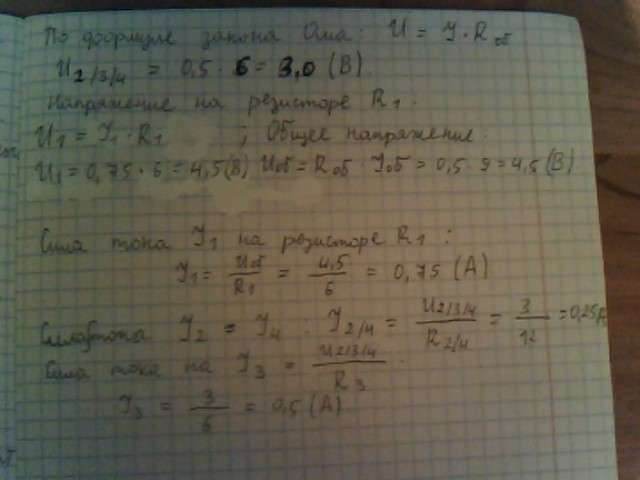 По формуле закона Ома: U = I · Rоб
U2/3/4 = 0,5 · 6 = 3,0 (В)
Напряжение на резисторе R1.
U1 = I1 · R1 ; Общее напряжение.
U1 = 0,75 · 6 = 4,5 (В) Uоб = Rоб · Iоб = 0,5 · 9 = 4,5 (В)
Сила тока I1 на резисторе R1 :
I1 = Uоб/R1 = 4,5/6 = 0,75 (А)
I2 = I4 . I2/4 = U2/3/4 / R2/4 = 3/12 = 0,25
Сила тока на I3 = U2/3/4 / R3 .
I3 = 3/6 = 0,5 (А)